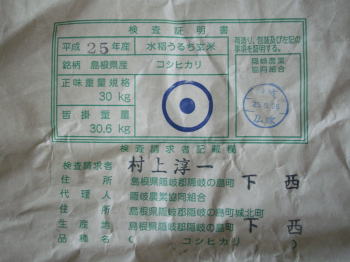 検査証明書
平成 25年産 水稲うるち玄米
銘柄 島根県産 コシヒカリ
正味重量規格
30 kg
皆掛重量
30.6 kg
荷造り、包装及び左記の
事項を証明する。
隠岐農業
協同組合
検査請求者記載欄
検査請求者 村上淳一
住所 島根県隠岐郡隠岐の島町 下西
代理人 隠岐農業協同組合
住所 島根県隠岐郡隠岐の島町城北町
生産地 島根県隠岐郡隠岐の島町 下西
品種名 ( コシヒカリ )